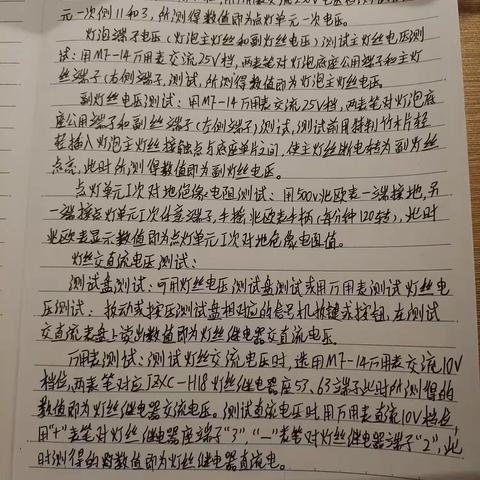 元一次侧11和3，所测得数值即为点灯单元一次电压。
灯泡端子电压（灯泡主灯丝和副灯丝电压）测试主灯丝电压测
试：用MF-14万用表交流25V档，两表笔对灯泡底座公用端子和主灯
丝端子（右侧端子，测试，所测得数值即为灯泡主灯丝电压。
副灯丝电压测试：用MF-14万用表交流25V档，两表笔对灯泡底
座公用端子和副丝端子（左侧端子）测试，测试前用特制竹木片轻
轻插入灯泡主灯丝接触点与底座单片之间，使主灯丝断电转为副灯丝
点亮，此时所测得数值即为副灯丝电压。
点灯单元I次对地绝缘电阻测试：用500V兆欧表一端接地，另
一端接点灯单元I次任意端子，手摇兆欧表手柄（每分钟120转），此时
兆欧表显示数值即为点灯单元I次对地绝缘电阻值。
灯丝交直流电压测试：
测试盘测试：可用灯丝电压测试盘测试或用万用表测试灯丝电
压测试：扳动或按压测试盘相对应的信号机按键或按钮，在测试
交直流表盘上读出数值即为灯丝继电器交直流电压。
万用表测试：测试灯丝交流电压时，选用MF-14万用表交流10V
档位，两表笔对应JZXC-H18灯丝继电器座53、63端子此时所测得的
数值即为灯丝继电器交流电压。测试直流电压时用万用表直流10V档位，
用“+”表笔对灯丝继电器座端子“3”，“-”表笔对灯丝继电器端子“2”，此
时测得的数值即为灯丝继电器直流电。